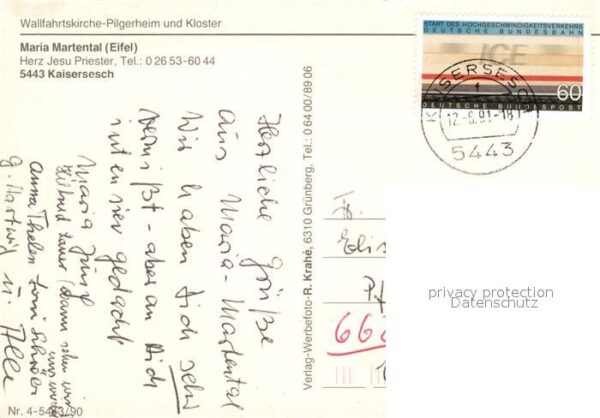 Wallfahrtskirche-Pilgerheim und Kloster
Maria Martental (Eifel)
Herz Jesu Priester, Tel.: 0 26 53-60 44
5443 Kaisersesch
START DES HOCHGESCHWINDIGKEITSVERKEHRS
DEUTSCHE BUNDESBAHN
ICE
60
DEUTSCHE BUNDESPOST
KAISERSESCH
f
5443
Herzliche Grüße
aus Maria-Martental
Wir haben Dich sehr
vermißt - aber an Dich
intensiv gedacht
Maria Jung
Anna Thelen Toni Schröer
G. Hartwig u. Alle
Verlag-Werbefoto-R. Krahé, 6310 Grünberg, Tel.: 0 64 00/89 06
Fr.
privacy protection
Datenschutz
Nr. 4-5443/90